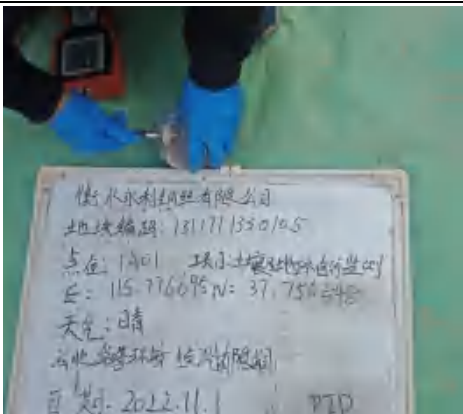 衡水水利钢丝有限公司
地块编码: 131171350105
点位: 1A01 项目: 土壤及地下水自行监测
E: 115.776695 N: 37.756548
天气: 晴
环境 检测有限公司
日期: 2022.11.1 PID